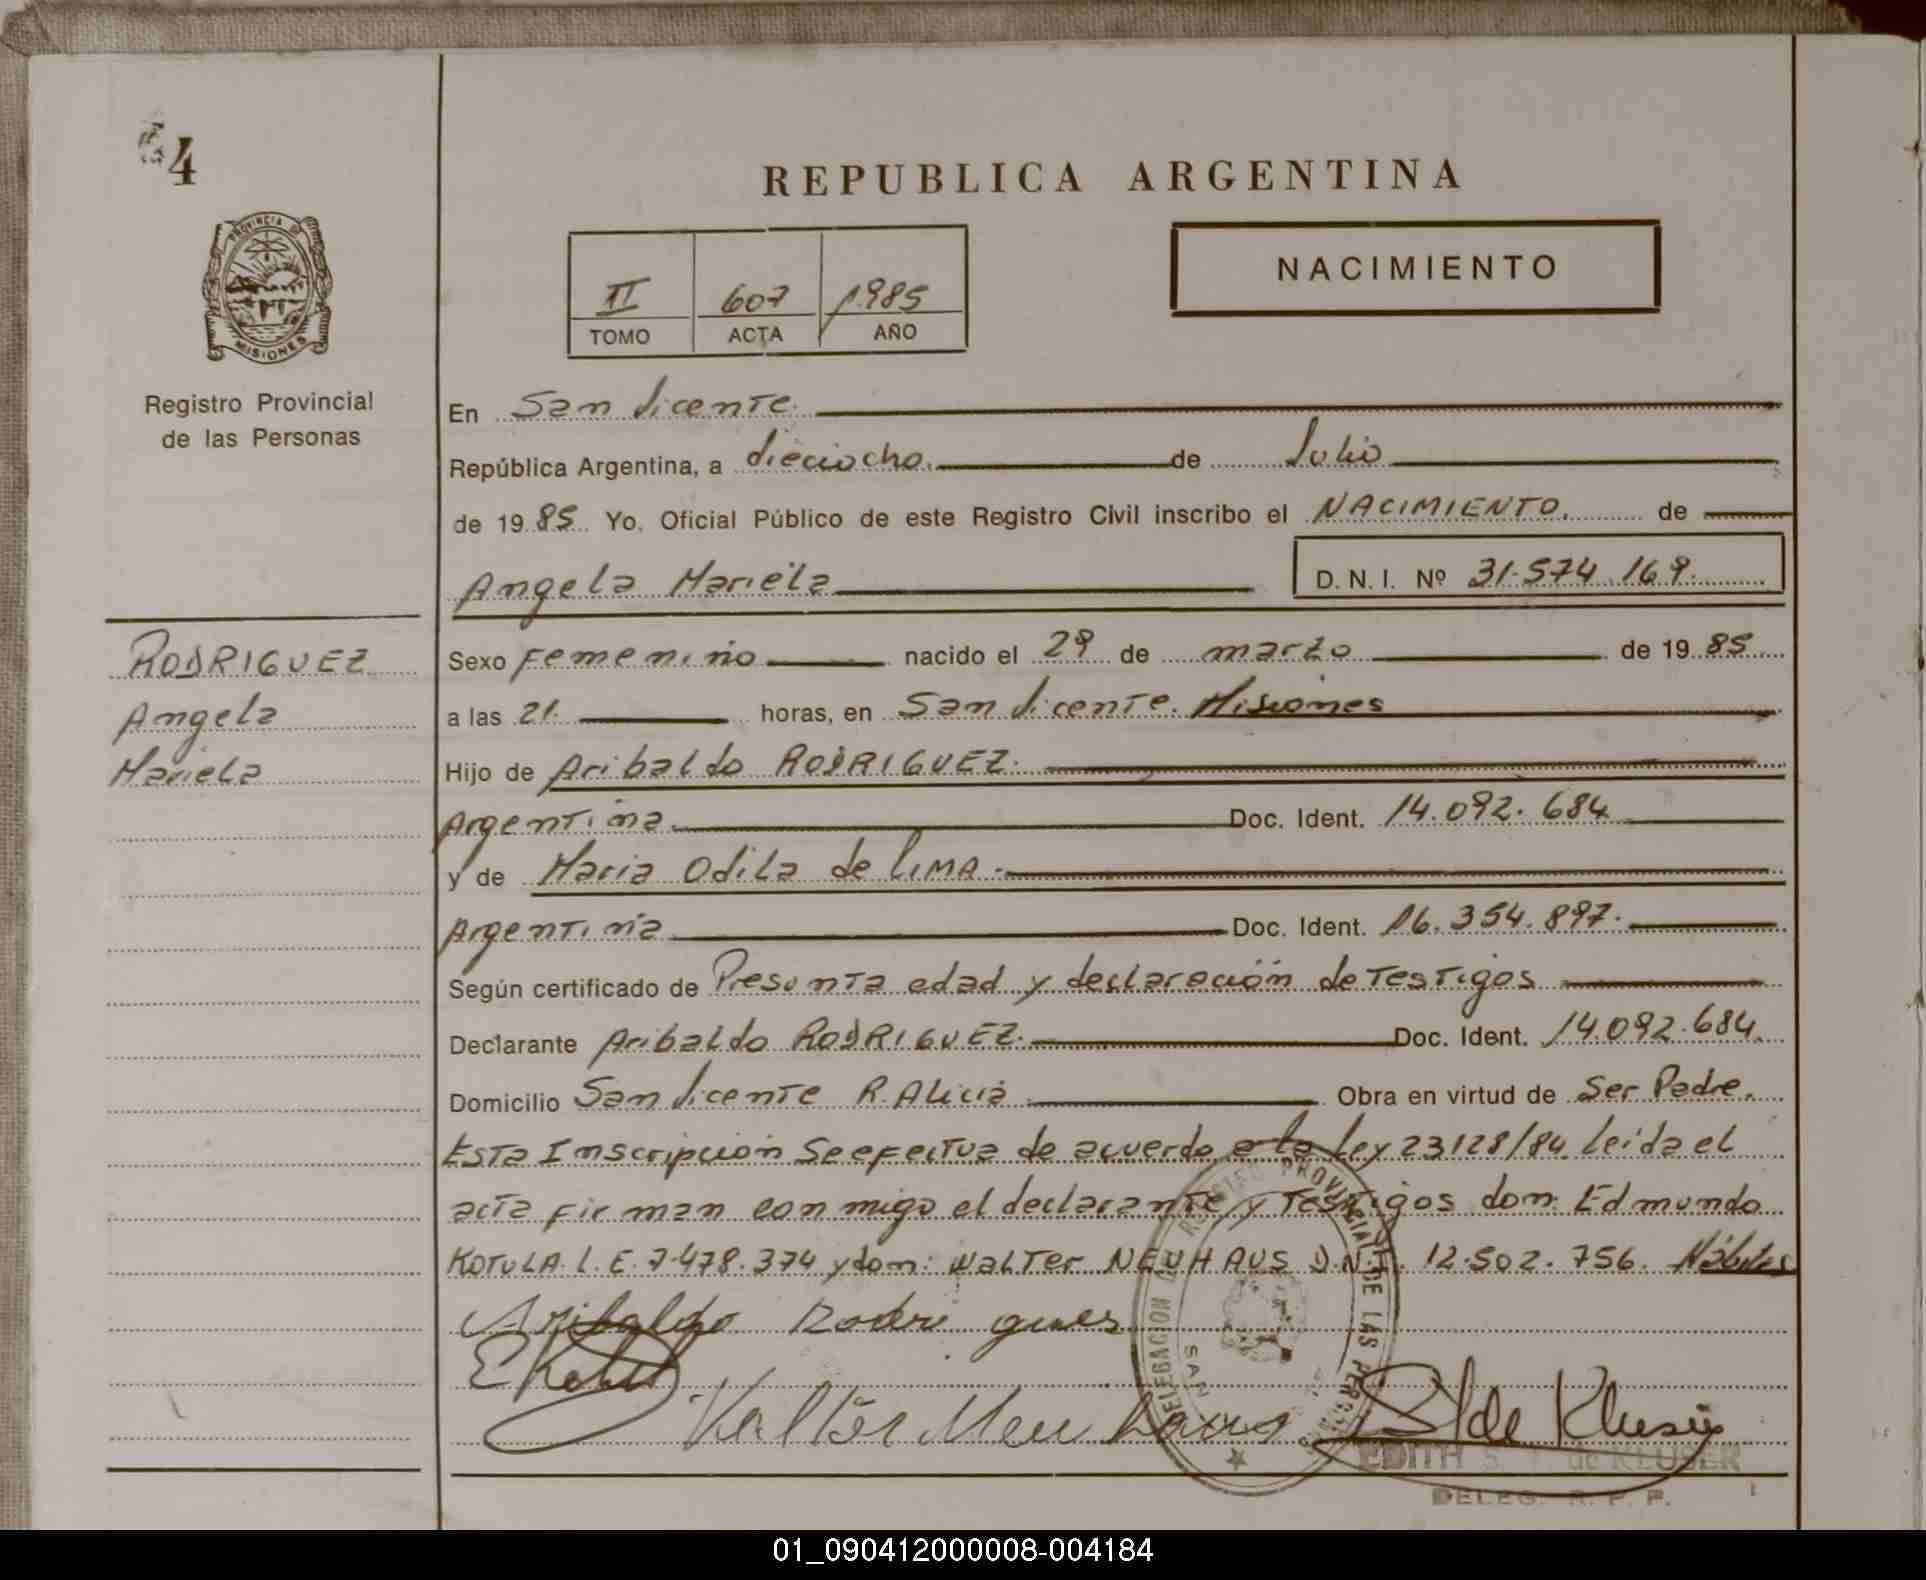 4
REPUBLICA ARGENTINA
PROVINCIA DE
MISIONES
NACIMIENTO
II 607 1985
TOMO ACTA AÑO
Registro Provincial
de las Personas
En San Vicente
República Argentina, a dieciocho. de Julio
de 19 85 Yo, Oficial Público de este Registro Civil inscribo el NACIMIENTO. de
Angela Mariela D. N. I. Nº 31.574.169.
RODRIGUEZ
Angela
Mariela
Sexo Femenino nacido el 29 de marzo de 19 85
a las 21. horas, en San Vicente. Misiones
Hijo de Aribaldo RODRIGUEZ.
Argentina. Doc. Ident. 14.092.684
y de Maria Odila de LIMA.
Argentina Doc. Ident. 16.354.897.
Según certificado de Presunta edad y declaración de Testigos
Declarante Aribaldo RODRIGUEZ. Doc. Ident. 14.092.684.
Domicilio San Vicente R. Alicia Obra en virtud de Ser Padre.
Esta Inscripción Se efectua de acuerdo a la Ley 23128/84. leida el
acta firman con migo el declarante y Testigos don: Edmundo
KOTULA. L. E. 7.478.374 y don: Walter NEUHAUS D.N.I. 12.502.756. Hábiles
Aribaldo Rodri gues
Walter Neu haus
DELEGACION REGISTRO PROVINCIAL DE LAS PERSONAS
SAN
EDITH S. de KLUSER
DELEG. R. P. P.
01_090412000008-004184